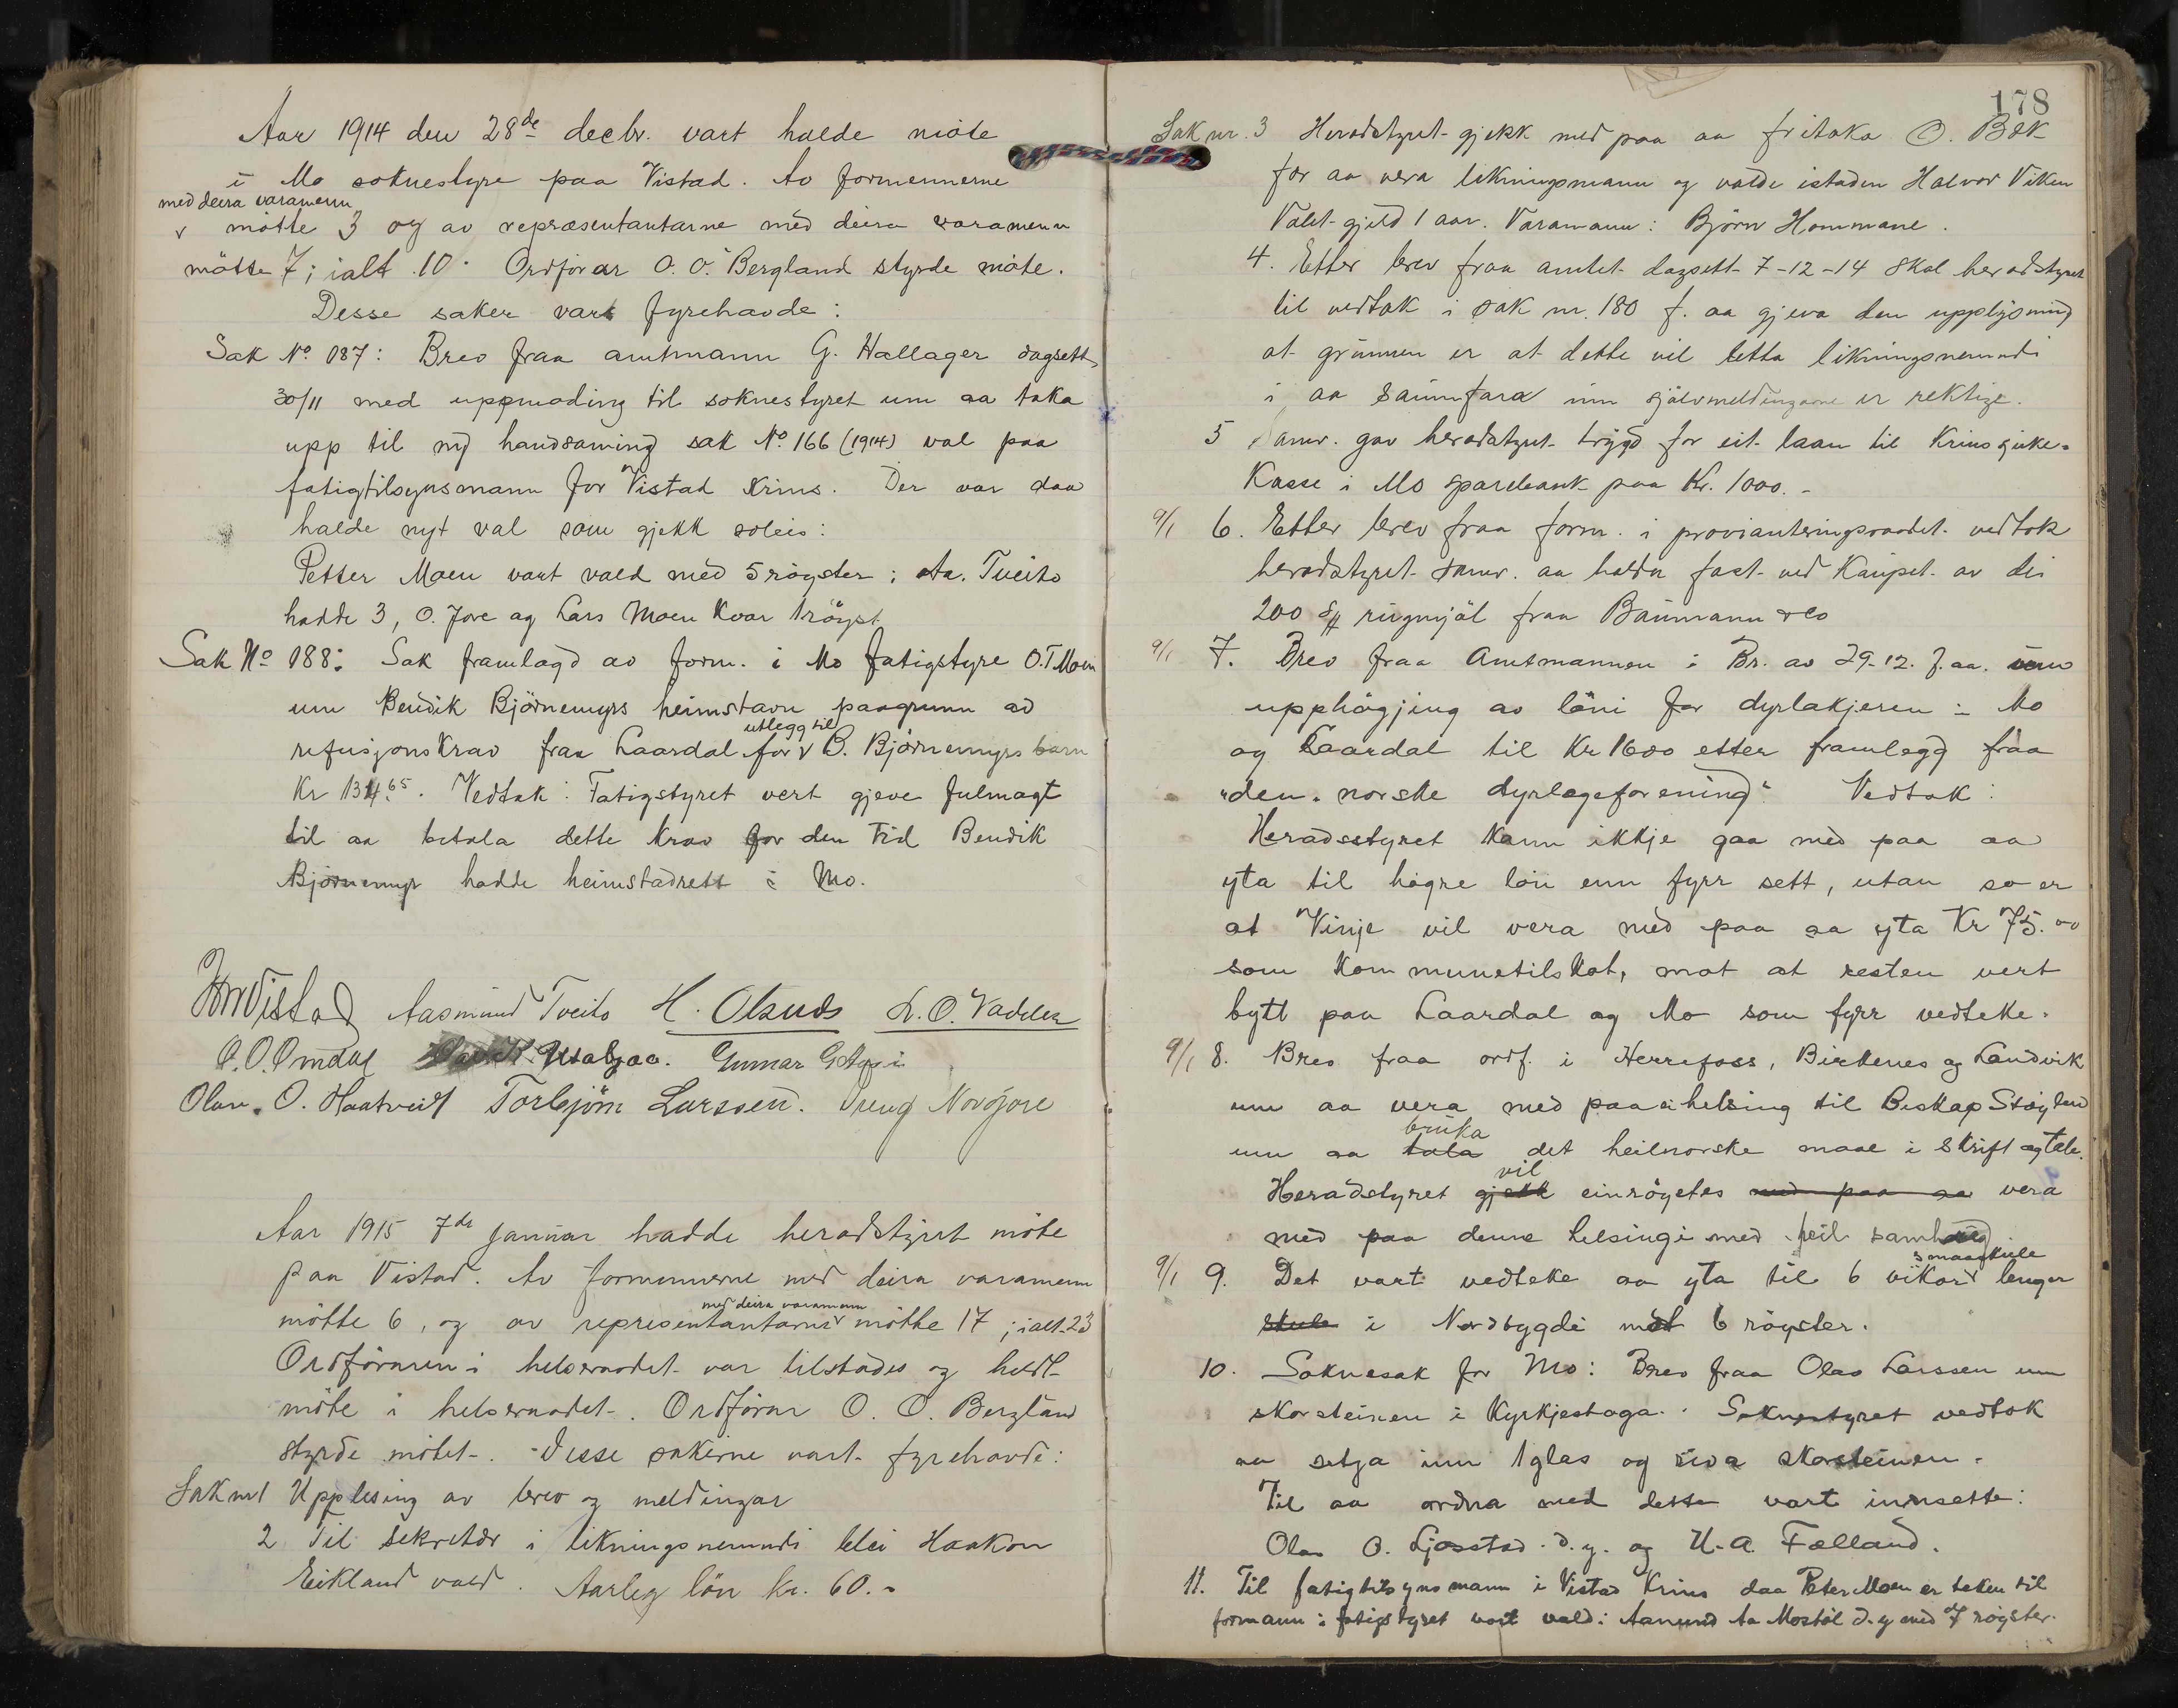 Aar 1914 den 28de decbr. vart halde möte
i Mo soknestyre paa Vistad. Av formennerne
med deira varamenn
v mötte 3 og av repræsentantarne med deira varamenn
mötte 7; ialt 10. Ordförar O. O. Bergland styrde möte.
Desse saker vart fyrehavde:
Sak No. 187: Brev fraa amtmann G. Hallager dagsett
30/11 med uppmoding til soknestyret um aa taka
upp til ny handsaming sak No. 166 (1914) val paa
fatigtilsynsmann for Vistad krins. Der var daa
halde nyt val som gjekk soleis:
Petter Moen vart vald med 5 röyster; Aa. Tveito
hadde 3, O. Jore og Lars Moen kvar 1 röyst
Sak No 188: Sak framlagd av form. i Mo fatigstyre O. T. Moen
um Bendik Björnemyrs heimstavn paagrunn av
utlegg til
refusjonskrav fraa Laardal for v B. Björnemyrs barn
Kr 134.65. Vedtak: Fatigstyret vert gjeve fulmagt
til aa betala dette krav for den tid Bendik
Björnemyr hadde heimstadrett i Mo.
Aasmund Tveito H. Olsnes
O. O. Omdal Gunnar
Olav O. Haatveit Torbjörn Larssen.
Aar 1915 7de januar hadde heradstyret möte
paa Vistad. Av formennerne med deira varamenn
med deira varamenn
mötte 6, og av representantarne v mötte 17; ialt 23
Ordföraren i helseraadet var tilstades og heldt
möte i helseraadet. Ordförar O. O. Bergland
styrde mötet. Desse sakerne vart fyrehavde:
Sak nr 1 Upplesing av brev og meldingar
2 Til sekretær i likningsnemndi blei Haakon
Eikland vald. Aarleg lön kr. 60.-
178
Sak nr. 3 Heradstyret gjekk med paa aa fritaka O. Bök
for aa vera likningsmann og valde istaden Halvor Viken
Valet gjeld 1 aar. Varamann: Björn Hommane.
4. Etter brev fraa amtet dagsett 7-12-14 skal heradstyret
til vedtak i sak nr. 180 f. aa gjeva den upplysning
at grunnen er at dette vil letta likningsnemndi
i aa saumfara um sjölvmeldingarne er rektige.
5 Samr. gav heradstyret trygd for eit laan til Krinssjuke-
Kasse i Mo sparebank paa Kr. 1000.-
9/1 6. Etter brev fraa form. i provianteringsraadet vedtok
heradstyret samr. aa halda fast ved Kaupet av dei
200 rugmjöl fraa Baumann & Co
9/1 7. Brev fraa Amtmannen i Br. av 29-12. f. aa. um
upphögjing av löni for dyrlækjeren i Mo
og Laardal til Kr 1600 etter framlegg fraa
"den norske dyrlægeforening" Vedtak:
Heradsstyret kann ikkje gaa med paa aa
yta til högre lön enn fyrr sett, utan so er
at Vinje vil vera med paa aa yta Kr 75.00
som kommunetilskot, mot at resten vert
bytt paa Laardal og Mo som fyrr vedteke.
9/1 8. Brev fraa ordf. i Herrefoss, Birkenes og Landvik
um aa vera med paa ei helsing til Biskop Støylen
bruka
um aa tala det heilnorske maal i skrift og tale.
vil
Heradstyret gjekk einröystes med paa aa vera
med paa denne helsingi med heil samhug
smaaskule
9/1 9. Det vart vedteke aa yta til 6 vikor v lenger
skule i Nordbygdi mot 6 röyster.
10. Soknesak for Mo: Brev fraa Olav Larssen um
skorsteinen i Kyrkjestoga. Soknestyret vedtok
aa setja inn 1 glas og riva skorsteinen.
Til aa ordna med dette vart innsette:
Olav O. Ljosstad d.y. og H. A. Fælland.
11. Til fatigtilsynsmann i Vistad Krins daa Peter Moen er teken til
formann i fatigstyret vart vald: Aanund Aa Mostöl d.y med 7 röyster.